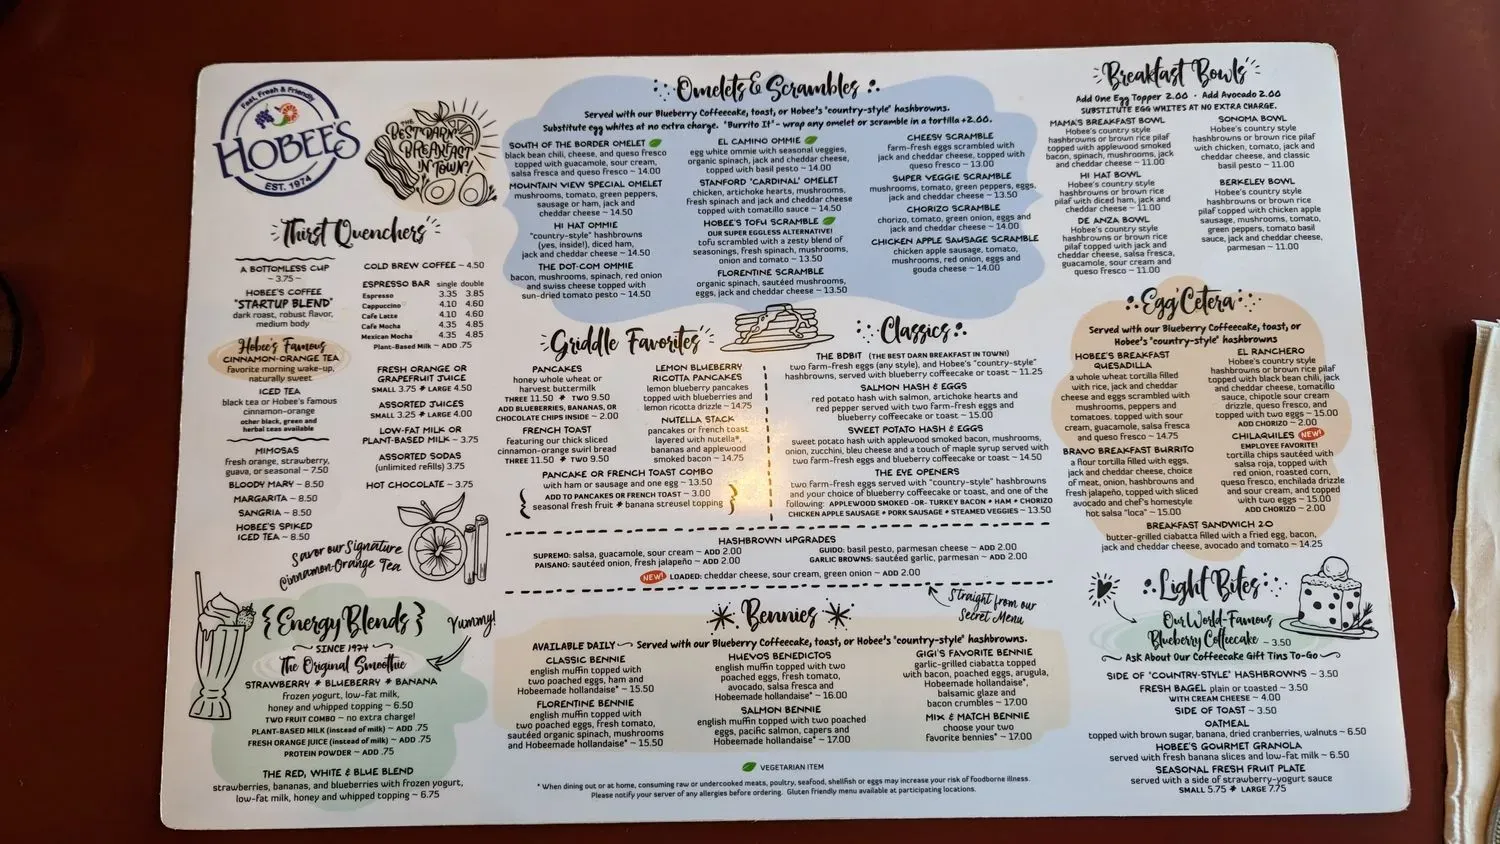 Fast, Fresh & Friendly
HOBEE'S
EST. 1974
THE
BEST DARN
BREAKFAST
IN TOWN!
Thirst Quenchers
A BOTTOMLESS CUP
~ 3.75 ~
HOBEE'S COFFEE
"STARTUP BLEND"
dark roast, robust flavor,
medium body
Hobee's Famous
CINNAMON-ORANGE TEA
favorite morning wake-up,
naturally sweet
ICED TEA
black tea or Hobee's famous
cinnamon-orange
other black, green and
herbal teas available
MIMOSAS
fresh orange, strawberry,
guava, or seasonal ~ 7.50
BLOODY MARY ~ 8.50
MARGARITA ~ 8.50
SANGRIA ~ 8.50
HOBEE'S SPIKED
ICED TEA ~ 8.50
COLD BREW COFFEE ~ 4.50
ESPRESSO BAR single double
Espresso 3.35 3.85
Cappuccino 4.10 4.60
Cafe Latte 4.10 4.60
Cafe Mocha 4.35 4.85
Mexican Mocha 4.35 4.85
Plant-Based Milk ~ ADD .75
FRESH ORANGE OR
GRAPEFRUIT JUICE
SMALL 3.75 * LARGE 4.50
ASSORTED JUICES
SMALL 3.25 * LARGE 4.00
LOW-FAT MILK OR
PLANT-BASED MILK ~ 3.75
ASSORTED SODAS
(unlimited refills) 3.75
HOT CHOCOLATE ~ 3.75
Savor our Signature
Cinnamon-Orange Tea
{Energy Blends}
Yummy!
~ SINCE 1974 ~
The Original Smoothie
STRAWBERRY * BLUEBERRY * BANANA
frozen yogurt, low-fat milk,
honey and whipped topping ~ 6.50
TWO FRUIT COMBO ~ no extra charge!
PLANT-BASED MILK (instead of milk) ~ ADD .75
FRESH ORANGE JUICE (instead of milk) ~ ADD .75
PROTEIN POWDER ~ ADD .75
THE RED, WHITE & BLUE BLEND
strawberries, bananas, and blueberries with frozen yogurt,
low-fat milk, honey and whipped topping ~ 6.75
Omelets & Scrambles
Served with our Blueberry Coffeecake, toast, or Hobee's "country-style" hashbrowns.
Substitute egg whites at no extra charge. "Burrito It" - wrap any omelet or scramble in a tortilla +2.00.
SOUTH OF THE BORDER OMELET
black bean chili, cheese, and queso fresco
topped with guacamole, sour cream,
salsa fresca and queso fresco ~ 14.00
MOUNTAIN VIEW SPECIAL OMELET
mushrooms, tomato, green peppers,
sausage or ham, jack and
cheddar cheese ~ 14.50
HI HAT OMMIE
"country-style" hashbrowns
(yes, inside!), diced ham,
jack and cheddar cheese ~ 14.50
THE DOT-COM OMMIE
bacon, mushrooms, spinach, red onion
and swiss cheese topped with
sun-dried tomato pesto ~ 14.50
EL CAMINO OMMIE
egg white ommie with seasonal veggies,
organic spinach, jack and cheddar cheese,
topped with basil pesto ~ 14.00
STANFORD "CARDINAL" OMELET
chicken, artichoke hearts, mushrooms,
fresh spinach and jack and cheddar cheese
topped with tomatillo sauce ~ 14.50
HOBEE'S TOFU SCRAMBLE
OUR SUPER EGGLESS ALTERNATIVE!
tofu scrambled with a zesty blend of
seasonings, fresh spinach, mushrooms,
onion and tomato ~ 13.50
FLORENTINE SCRAMBLE
organic spinach, sautéed mushrooms,
eggs, jack and cheddar cheese ~ 13.50
CHEESY SCRAMBLE
farm-fresh eggs scrambled with
jack and cheddar cheese, topped with
queso fresco ~ 13.00
SUPER VEGGIE SCRAMBLE
mushrooms, tomato, green peppers, eggs,
jack and cheddar cheese ~ 13.50
CHORIZO SCRAMBLE
chorizo, tomato, green onion, eggs and
jack and cheddar cheese ~ 14.00
CHICKEN APPLE SAUSAGE SCRAMBLE
chicken apple sausage, tomato,
mushrooms, red onion, eggs and
gouda cheese ~ 14.00
Griddle Favorites
PANCAKES
honey whole wheat or
harvest buttermilk
THREE 11.50 * TWO 9.50
ADD BLUEBERRIES, BANANAS, OR
CHOCOLATE CHIPS INSIDE ~ 2.00
FRENCH TOAST
featuring our thick sliced
cinnamon-orange swirl bread
THREE 11.50 * TWO 9.50
LEMON BLUEBERRY
RICOTTA PANCAKES
lemon blueberry pancakes
topped with blueberries and
lemon ricotta drizzle ~ 14.75
NUTELLA STACK
pancakes or french toast
layered with nutella®,
bananas and applewood
smoked bacon ~ 14.75
PANCAKE OR FRENCH TOAST COMBO
with ham or sausage and one egg ~ 13.50
ADD TO PANCAKES OR FRENCH TOAST ~ 3.00
seasonal fresh fruit * banana streusel topping
Classics
THE BDBIT (THE BEST DARN BREAKFAST IN TOWN!)
two farm-fresh eggs (any style), and Hobee's "country-style"
hashbrowns, served with blueberry coffeecake or toast ~ 11.25
SALMON HASH & EGGS
red potato hash with salmon, artichoke hearts and
red pepper served with two farm-fresh eggs and
blueberry coffeecake or toast ~ 15.00
SWEET POTATO HASH & EGGS
sweet potato hash with applewood smoked bacon, mushrooms,
onion, zucchini, bleu cheese and a touch of maple syrup served with
two farm-fresh eggs and blueberry coffeecake or toast ~ 14.50
THE EYE OPENERS
two farm-fresh eggs served with "country-style" hashbrowns
and your choice of blueberry coffeecake or toast, and one of the
following: APPLEWOOD SMOKED -OR- TURKEY BACON * HAM * CHORIZO
CHICKEN APPLE SAUSAGE * PORK SAUSAGE * STEAMED VEGGIES ~ 13.50
HASHBROWN UPGRADES
SUPREMO: salsa, guacamole, sour cream ~ ADD 2.00
PAISANO: sautéed onion, fresh jalapeño ~ ADD 2.00
GUIDO: basil pesto, parmesan cheese ~ ADD 2.00
GARLIC BROWNS: sautéed garlic, parmesan ~ ADD 2.00
NEW! LOADED: cheddar cheese, sour cream, green onion ~ ADD 2.00
Straight from our
Secret Menu
Bennies
AVAILABLE DAILY ~ Served with our Blueberry Coffeecake, toast, or Hobee's "country-style" hashbrowns.
CLASSIC BENNIE
english muffin topped with
two poached eggs, ham and
Hobeemade hollandaise* ~ 15.50
FLORENTINE BENNIE
english muffin topped with
two poached eggs, fresh tomato,
sautéed organic spinach, mushrooms
and Hobeemade hollandaise* ~ 15.50
HUEVOS BENEDICTOS
english muffin topped with two
poached eggs, fresh tomato,
avocado, salsa fresca and
Hobeemade hollandaise* ~ 16.00
SALMON BENNIE
english muffin topped with two poached
eggs, pacific salmon, capers and
Hobeemade hollandaise* ~ 17.00
GIGI'S FAVORITE BENNIE
garlic-grilled ciabatta topped
with bacon, poached eggs, arugula,
Hobeemade hollandaise*,
balsamic glaze and
bacon crumbles ~ 17.00
MIX & MATCH BENNIE
choose your two
favorite bennies* ~ 17.00
VEGETARIAN ITEM
* When dining out or at home, consuming raw or undercooked meats, poultry, seafood, shellfish or eggs may increase your risk of foodborne illness.
Please notify your server of any allergies before ordering. Gluten friendly menu available at participating locations.
Breakfast Bowls
Add One Egg Topper 2.00 · Add Avocado 2.00
SUBSTITUTE EGG WHITES AT NO EXTRA CHARGE.
MAMA'S BREAKFAST BOWL
Hobee's country style
hashbrowns or brown rice pilaf
topped with applewood smoked
bacon, spinach, mushrooms, jack
and cheddar cheese ~ 11.00
HI HAT BOWL
Hobee's country style
hashbrowns or brown rice
pilaf with diced ham, jack and
cheddar cheese ~ 11.00
DE ANZA BOWL
Hobee's country style
hashbrowns or brown rice
pilaf topped with jack and
cheddar cheese, salsa fresca,
guacamole, sour cream and
queso fresco ~ 11.00
SONOMA BOWL
Hobee's country style
hashbrowns or brown rice pilaf
with chicken, tomato, jack and
cheddar cheese, and classic
basil pesto ~ 11.00
BERKELEY BOWL
Hobee's country style
hashbrowns or brown rice
pilaf topped with chicken apple
sausage, mushrooms, tomato,
green peppers, tomato basil
sauce, jack and cheddar cheese,
parmesan ~ 11.00
Egg Cetera
Served with our Blueberry Coffeecake, toast, or
Hobee's "country-style" hashbrowns
HOBEE'S BREAKFAST
QUESADILLA
a whole wheat tortilla filled
with rice, jack and cheddar
cheese and eggs scrambled with
mushrooms, peppers and
tomatoes, topped with sour
cream, guacamole, salsa fresca
and queso fresco ~ 14.75
BRAVO BREAKFAST BURRITO
a flour tortilla filled with eggs,
jack and cheddar cheese, choice
of meat, onion, hashbrowns and
fresh jalapeño, topped with sliced
avocado and chef's homestyle
hot salsa "loca" ~ 15.00
EL RANCHERO
Hobee's country style
hashbrowns or brown rice pilaf
topped with black bean chili, jack
and cheddar cheese, tomatillo
sauce, chipotle sour cream
drizzle, queso fresco, and
topped with two eggs ~ 15.00
ADD CHORIZO ~ 2.00
CHILAQUILES NEW!
EMPLOYEE FAVORITE!
tortilla chips sautéed with
salsa roja, topped with
red onion, roasted corn,
queso fresco, enchilada drizzle
and sour cream, and topped
with two eggs ~ 15.00
ADD CHORIZO ~ 2.00
BREAKFAST SANDWICH 2.0
butter-grilled ciabatta filled with a fried egg, bacon,
jack and cheddar cheese, avocado and tomato ~ 14.25
Light Bites
Our World-Famous
Blueberry Coffeecake ~ 3.50
~ Ask About Our Coffeecake Gift Tins To-Go ~
SIDE OF "COUNTRY-STYLE" HASHBROWNS ~ 3.50
FRESH BAGEL plain or toasted ~ 3.50
WITH CREAM CHEESE ~ 4.00
SIDE OF TOAST ~ 3.50
OATMEAL
topped with brown sugar, banana, dried cranberries, walnuts ~ 6.50
HOBEE'S GOURMET GRANOLA
served with fresh banana slices and low-fat milk ~ 6.50
SEASONAL FRESH FRUIT PLATE
served with a side of strawberry-yogurt sauce
SMALL 5.75 * LARGE 7.75